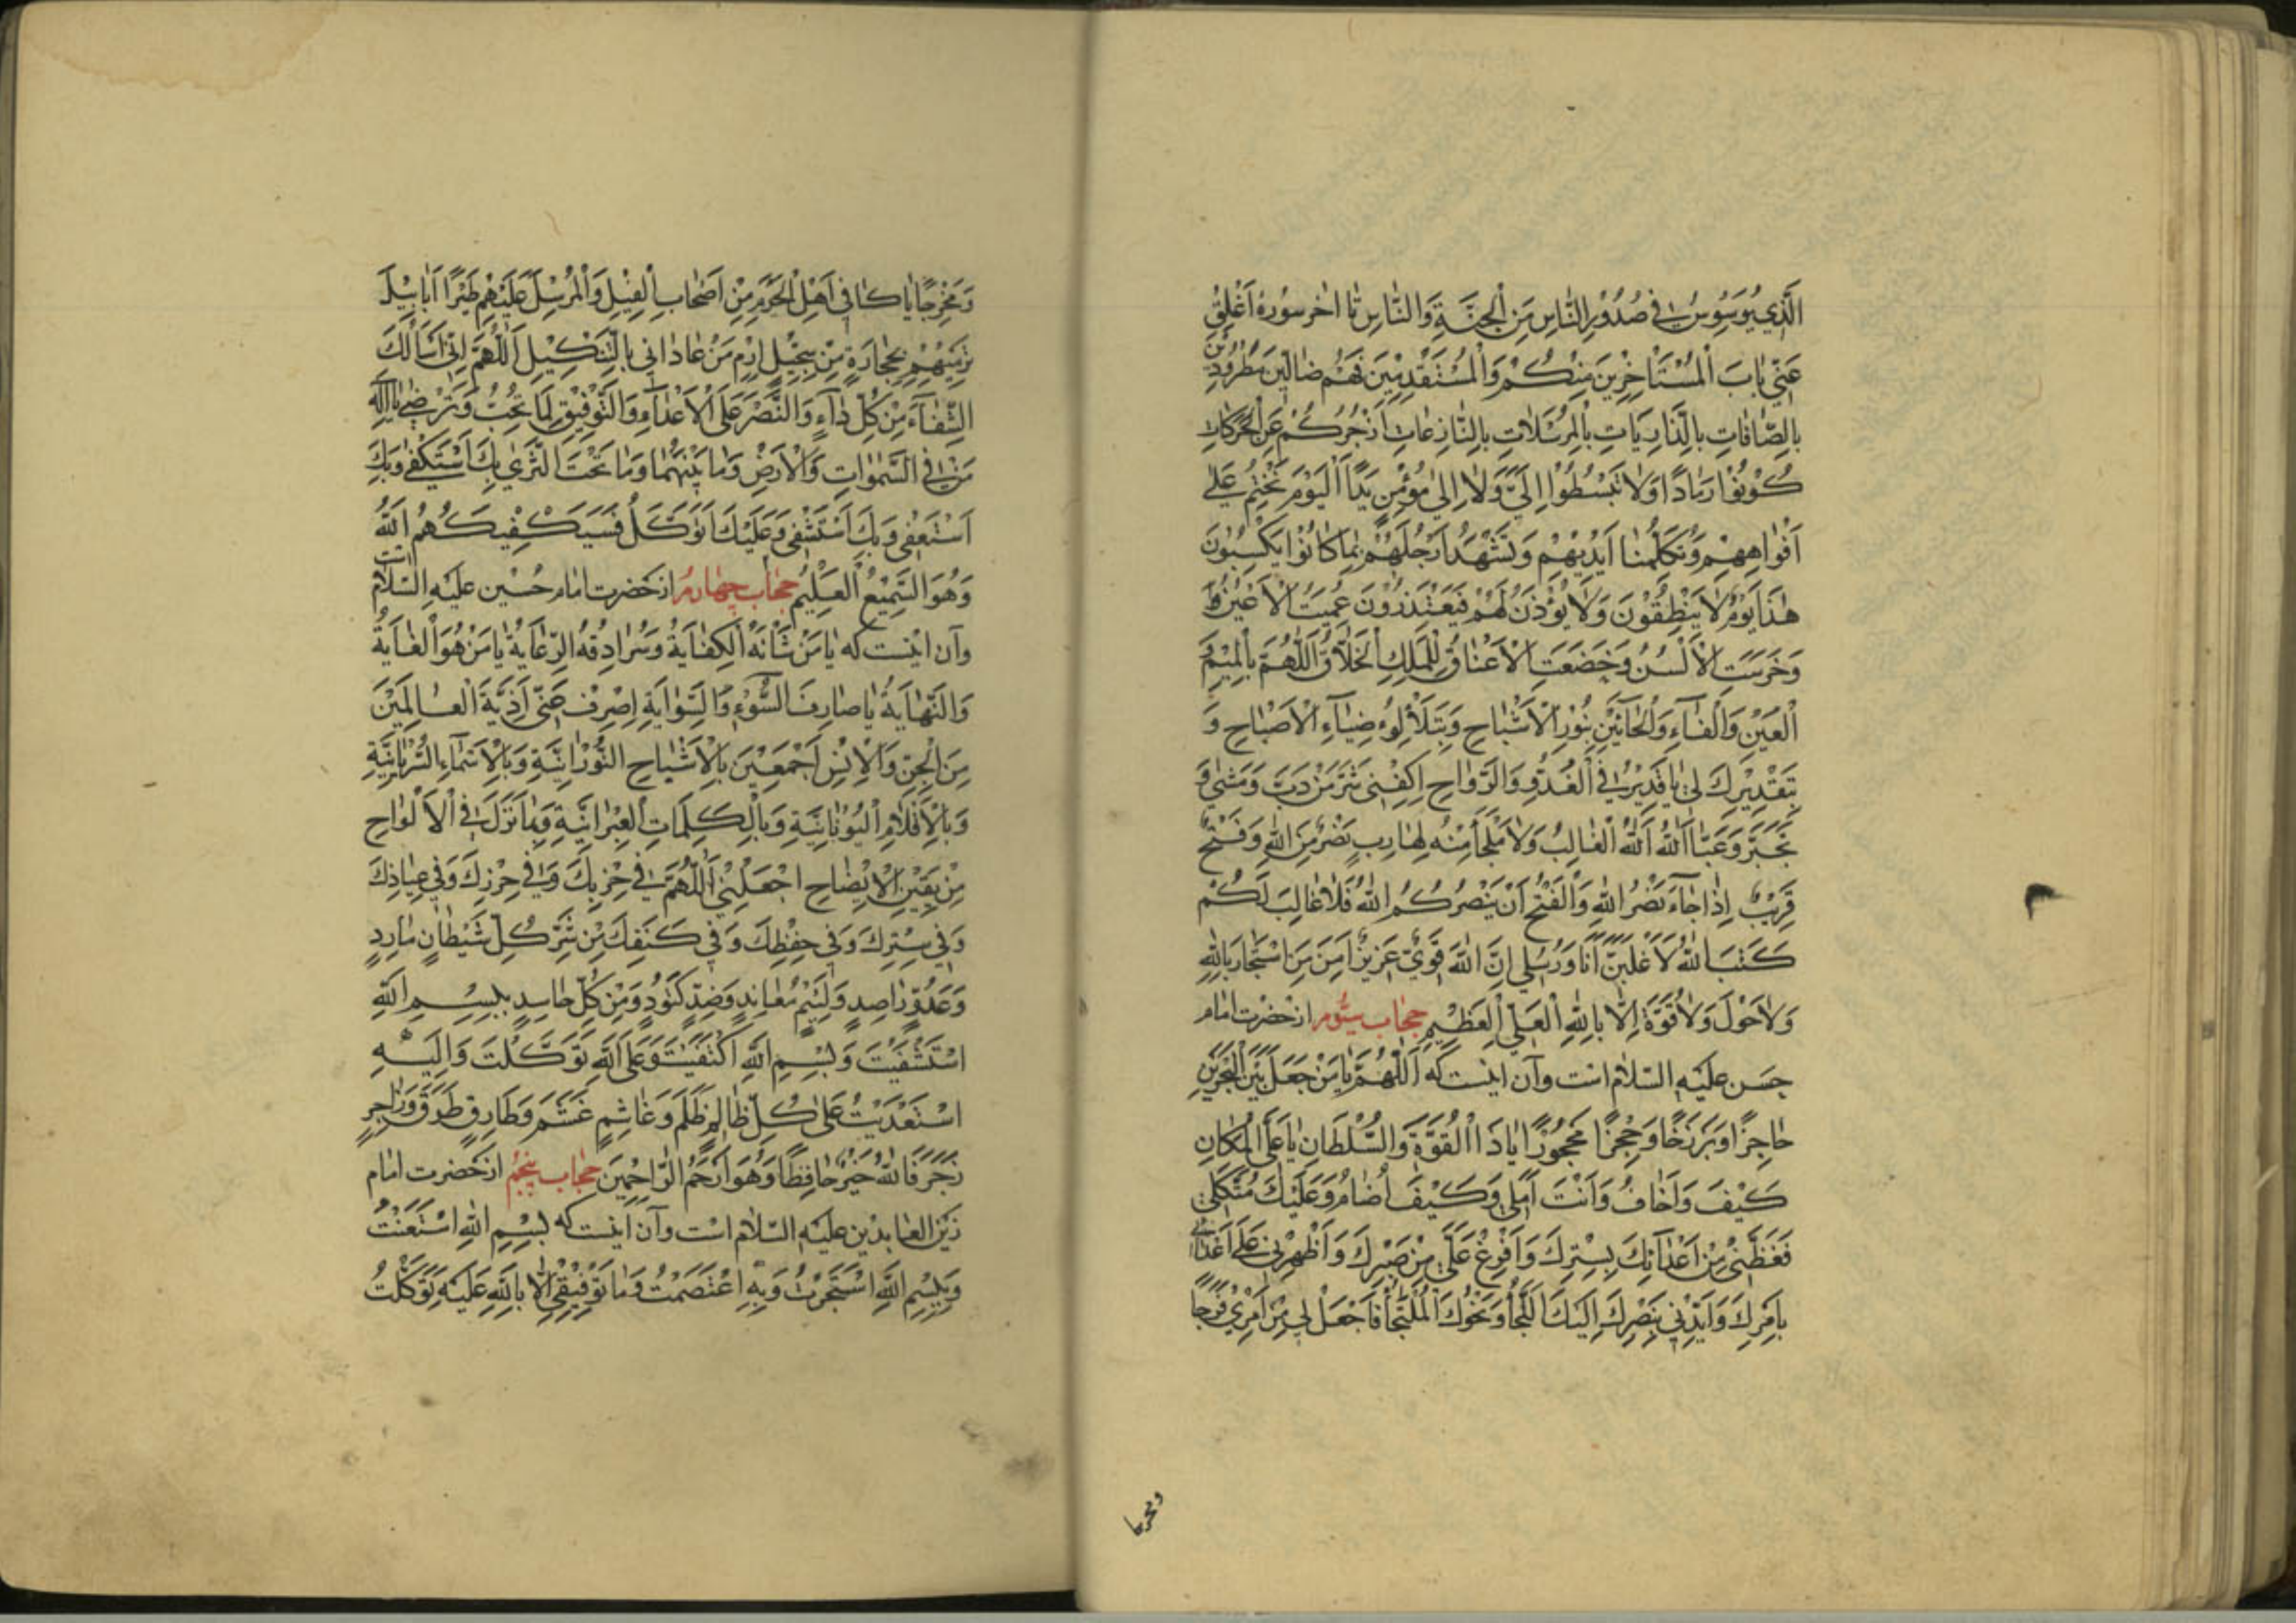 الَّذِي يُوَسْوِسُ فِي صُدُورِ النَّاسِ مِنَ الْجِنَّةِ وَالنَّاسِ تا اخر سوره اُغْلِقُ
عَنّي بابَ الْمُسْتَأْخِرينَ مِنْكُمْ وَالْمُسْتَقْدِمينَ فَهُمْ ضالّينَ مَطْرُودينَ
بِالصَّافَّاتِ بِالذَّارِيَاتِ بِالْمُرْسَلاتِ بِالنَّازِعاتِ اَزْجُرُكُمْ عَنِ الْحَرَكاتِ
كُونُوا رَمادًا وَلا تَبْسُطُوا اِلَيَّ وَلا اِلى مُؤْمِنٍ يَدًا اَلْيَوْمَ نَخْتِمُ عَلى
اَفْواهِهِمْ وَتُكَلِّمُنا اَيْديهِمْ وَتَشْهَدُ اَرْجُلُهُمْ بِما كانُوا يَكْسِبُونَ
هذا يَوْمُ لا يَنْطِقُونَ وَلا يُؤْذَنُ لَهُمْ فَيَعْتَذِرُونَ عُمِيَتِ الْاَعْيُنُ
وَخَرِسَتِ الْاَلْسُنُ وَخَضَعَتِ الْاَعْناقُ لِلْمَلِكِ الْخَلّاقِ اَللّهُمَّ بِالْميمِ
وَالْعَيْنِ وَالْفاءِ وَالْحائَيْنِ بِنُورِ الْاَشْباحِ وَبِتَلَأْلُؤِ ضِياءِ الْاَصْباحِ وَ
بِتَقْديرِكَ لي يا قَديرُ فِي الْغُدُوِّ وَالرَّواحِ اِكْفِني شَرَّ مَنْ دَبَّ وَمَشى وَ
تَجَبَّرَ وَعَتا اَللهُ اَللهُ الْغالِبُ وَلا مَلْجَأَ مِنْهُ لِهارِبٍ نَصْرٌ مِنَ اللهِ وَفَتْحٌ
قَريبٌ اِذا جاءَ نَصْرُ اللهِ وَالْفَتْحُ اَنْ يَنْصُرْكُمُ اللهُ فَلا غالِبَ لَكُمْ
كَتَبَ اللهُ لَاَغْلِبَنَّ اَنَا وَرُسُلي اِنَّ اللهَ قَوِيٌّ عَزيزٌ اَمِنَ مَنِ اسْتَجارَ بِاللهِ
وَلا حَوْلَ وَلا قُوَّةَ اِلّا بِاللهِ الْعَلِيِّ الْعَظيمِ حجاب سيّوم از حضرت امام
حسن عليه السلام است وآن اينست كه اَللّهُمَّ يا مَنْ جَعَلَ بَيْنَ الْبَحْرَيْنِ
حاجِزًا وَبَرْزَخًا وَحِجْرًا مَحْجُورًا يا ذَا الْقُوَّةِ وَالسُّلْطانِ يا عَلِيَّ الْمَكانِ
كَيْفَ وَاَخافُ وَاَنْتَ اَمَلي وَكَيْفَ اُضامُ وَعَلَيْكَ مُتَّكَلي
فَغَطِّني مِنْ اَعْدائِكَ بِسِتْرِكَ وَاَفْرِغْ عَلَيَّ مِنْ صَبْرِكَ وَاَظْهِرْني عَلى اَعْدائي
بِاَمْرِكَ وَاَيِّدْني بِنَصْرِكَ اِلَيْكَ اللَّجَأُ وَنَحْوُكَ الْمُلْتَجَأُ فَاجْعَلْ لي مِنْ اَمْري فَرَجًا
ومخرجا
وَمَخْرَجًا يا كافِيَ اَهْلِ الْحَرَمِ مِنْ اَصْحابِ الْفيلِ وَالْمُرْسِلَ عَلَيْهِمْ طَيْرًا اَبابيلَ
تَرْميهِمْ بِحِجارَةٍ مِنْ سِجّيلٍ اِرْمِ مَنْ عاداني بِالتَّنْكيلِ اَللّهُمَّ اِنّي اَسْأَلُكَ
الشِّفاءَ مِنْ كُلِّ داءٍ وَالنَّصْرَ عَلَى الْاَعْداءِ وَالتَّوْفيقَ لِما تُحِبُّ وَتَرْضى يا اِلهَ
مَنْ فِي السَّمواتِ وَالْاَرْضِ وَما بَيْنَهُما وَما تَحْتَ الثَّرى بِكَ اَسْتَكْفي وَبِكَ
اَسْتَعْفي وَبِكَ اَسْتَشْفي وَعَلَيْكَ اَتَوَكَّلُ فَسَيَكْفيكَهُمُ اللهُ
وَهُوَ السَّميعُ الْعَليمُ حجاب چهارم از حضرت امام حسين عليه السلام است
وآن اينست كه يا مَنْ شَأْنُهُ الْكِفايَةُ وَسُرادِقُهُ الرِّعايَةُ يا مَنْ هُوَ الْغايَةُ
وَالنِّهايَةُ يا صارِفَ السُّوءِ وَالسَّوايَةِ اِصْرِفْ عَنّي اَذِيَّةَ الْعالَمينَ
مِنَ الْجِنِّ وَالْاِنْسِ اَجْمَعينَ بِالْاَشْباحِ النُّورانِيَّةِ وَبِالْاَسْماءِ السُّرْيانِيَّةِ
وَبِالْاَقْلامِ الْيُونانِيَّةِ وَبِالْكَلِماتِ الْعِبْرانِيَّةِ وَبِما نَزَلَ فِي الْاَلْواحِ
مِنْ يَقينِ الْايضاحِ اجْعَلْنِي اللّهُمَّ في حِزْبِكَ وَفي حِرْزِكَ وَفي عِياذِكَ
وَفي سِتْرِكَ وَفي حِفْظِكَ وَفي كَنَفِكَ مِنْ شَرِّ كُلِّ شَيْطانٍ مارِدٍ
وَعَدُوٍّ راصِدٍ وَلَئيمٍ مُعانِدٍ وَضِدٍّ كَنُودٍ وَمِنْ كُلِّ حاسِدٍ بِبِسْمِ اللهِ
اسْتَشْفَيْتُ وَبِسْمِ اللهِ اكْتَفَيْتُ وَعَلَى اللهِ تَوَكَّلْتُ وَاِلَيْهِ
اسْتَعْدَيْتُ عَلى كُلِّ ظالِمٍ ظَلَمَ وَغاشِمٍ غَشَمَ وَطارِقٍ طَرَقَ وَزاجِرٍ
زَجَرَ فَاللهُ خَيْرٌ حافِظًا وَهُوَ اَرْحَمُ الرّاحِمينَ حجاب پنجم از حضرت امام
زين العابدين عليه السلام است وآن اينست كه بِسْمِ اللهِ اسْتَعَنْتُ
وَبِبِسْمِ اللهِ اسْتَجَرْتُ وَبِهِ اعْتَصَمْتُ وَما تَوْفيقي اِلّا بِاللهِ عَلَيْهِ تَوَكَّلْتُ